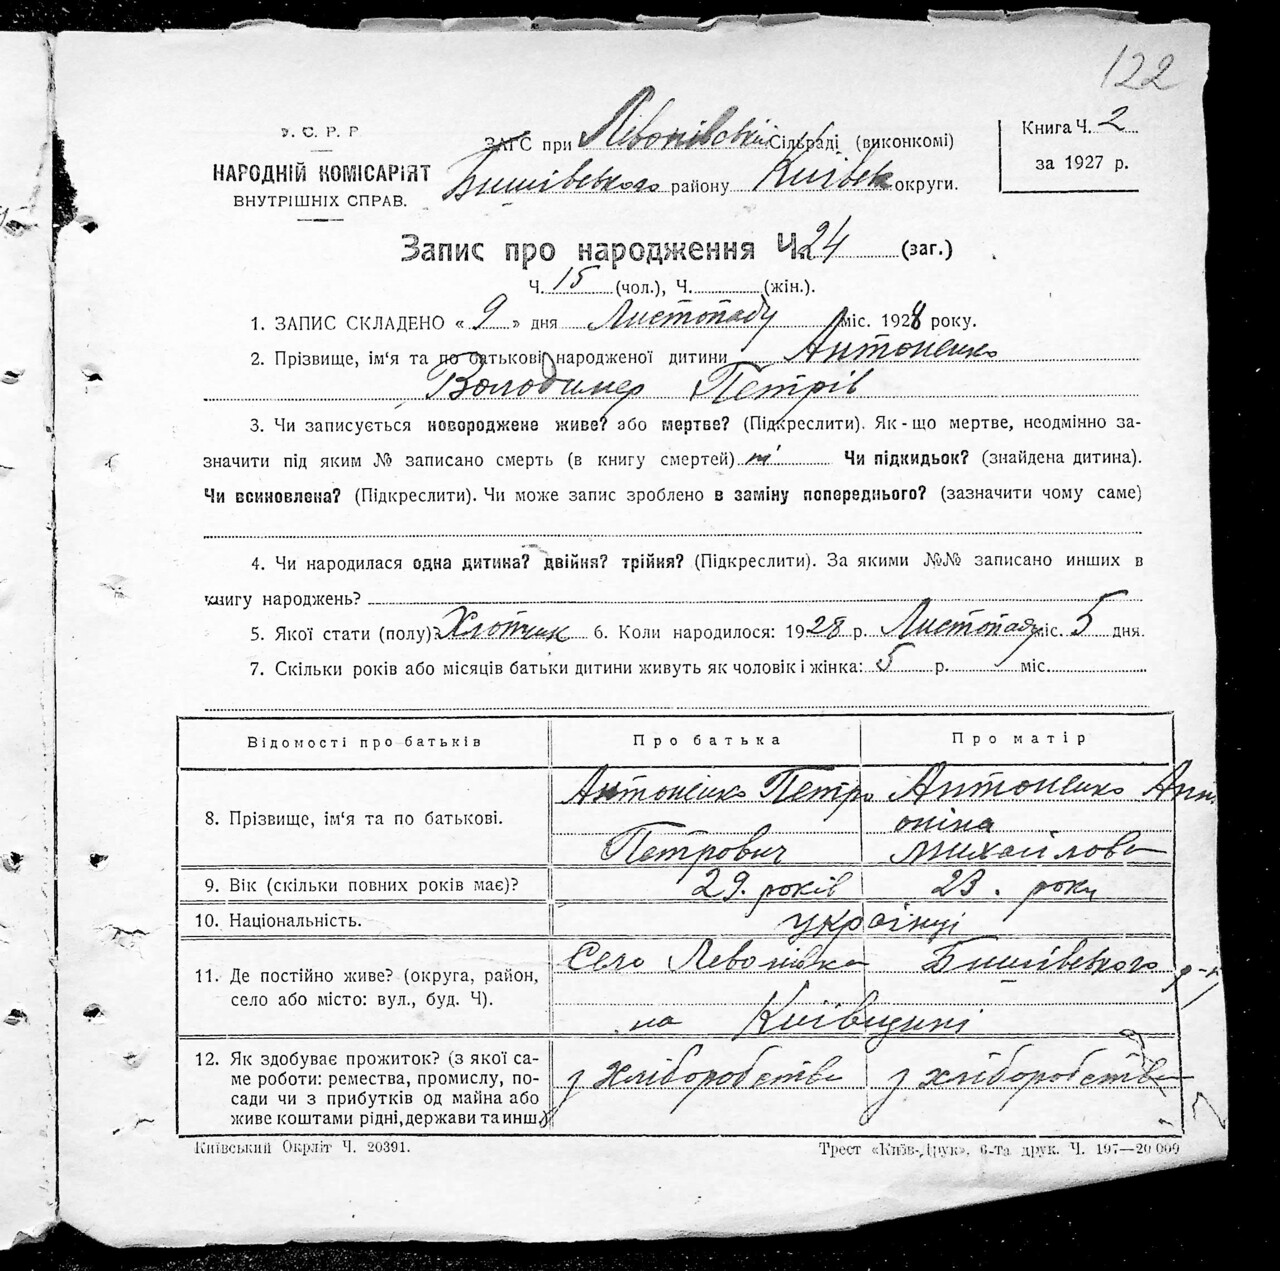 122
У. С. Р. Р
НАРОДНІЙ КОМІСАРІЯТ
ВНУТРІШНІХ СПРАВ.
ЗАГС при Левонівській Сільраді (виконкомі)
Бишівського району Київськ округи.
Книга Ч. 2
за 1927 р.
Запис про народження Ч. 24 (заг.)
Ч. 15 (чол.), Ч. (жін.).
1. ЗАПИС СКЛАДЕНО « 9 » дня Листопаду міс. 1928 року.
2. Прізвище, ім‘я та по батькові народженої дитини Антоненко
Володимер Петрів
3. Чи записується новороджене живе? або мертве? (Підкреслити). Як-що мертве, неодмінно за-
значити під яким № записано смерть (в книгу смертей) ні Чи підкидьок? (знайдена дитина).
Чи всиновлена? (Підкреслити). Чи може запис зроблено в заміну попереднього? (зазначити чому саме)
4. Чи народилася одна дитина? двійня? трійня? (Підкреслити). За якими №№ записано инших в
книгу народжень?
5. Якої стати (полу)? Хлопчик 6. Коли народилося: 1928 р. Листопаду міс. 5 дня.
7. Скільки років або місяців батьки дитини живуть як чоловік і жінка: 5 р. міс.
Відомості про батьків Про батька Про матір
8. Прізвище, ім‘я та по батькові. Антоненко Петро Антоненко Ант
оніна
Петрович Михайлова
9. Вік (скільки повних років має)? 29. років 23. роки
10. Національність. українці
11. Де постійно живе? (округа, район, Село Левонівка Бишівського р-н
село або місто: вул., буд. Ч). на Київщині
12. Як здобуває прожиток? (з якої са- з хліборобства з хліборобства
ме роботи: ремества, промислу, по-
сади чи з прибутків од майна або
живе коштами рідні, держави та инш.)
Київський Окрліт Ч. 20391. Трест «Київ-Друк», 6-та друк. Ч. 197—20 000